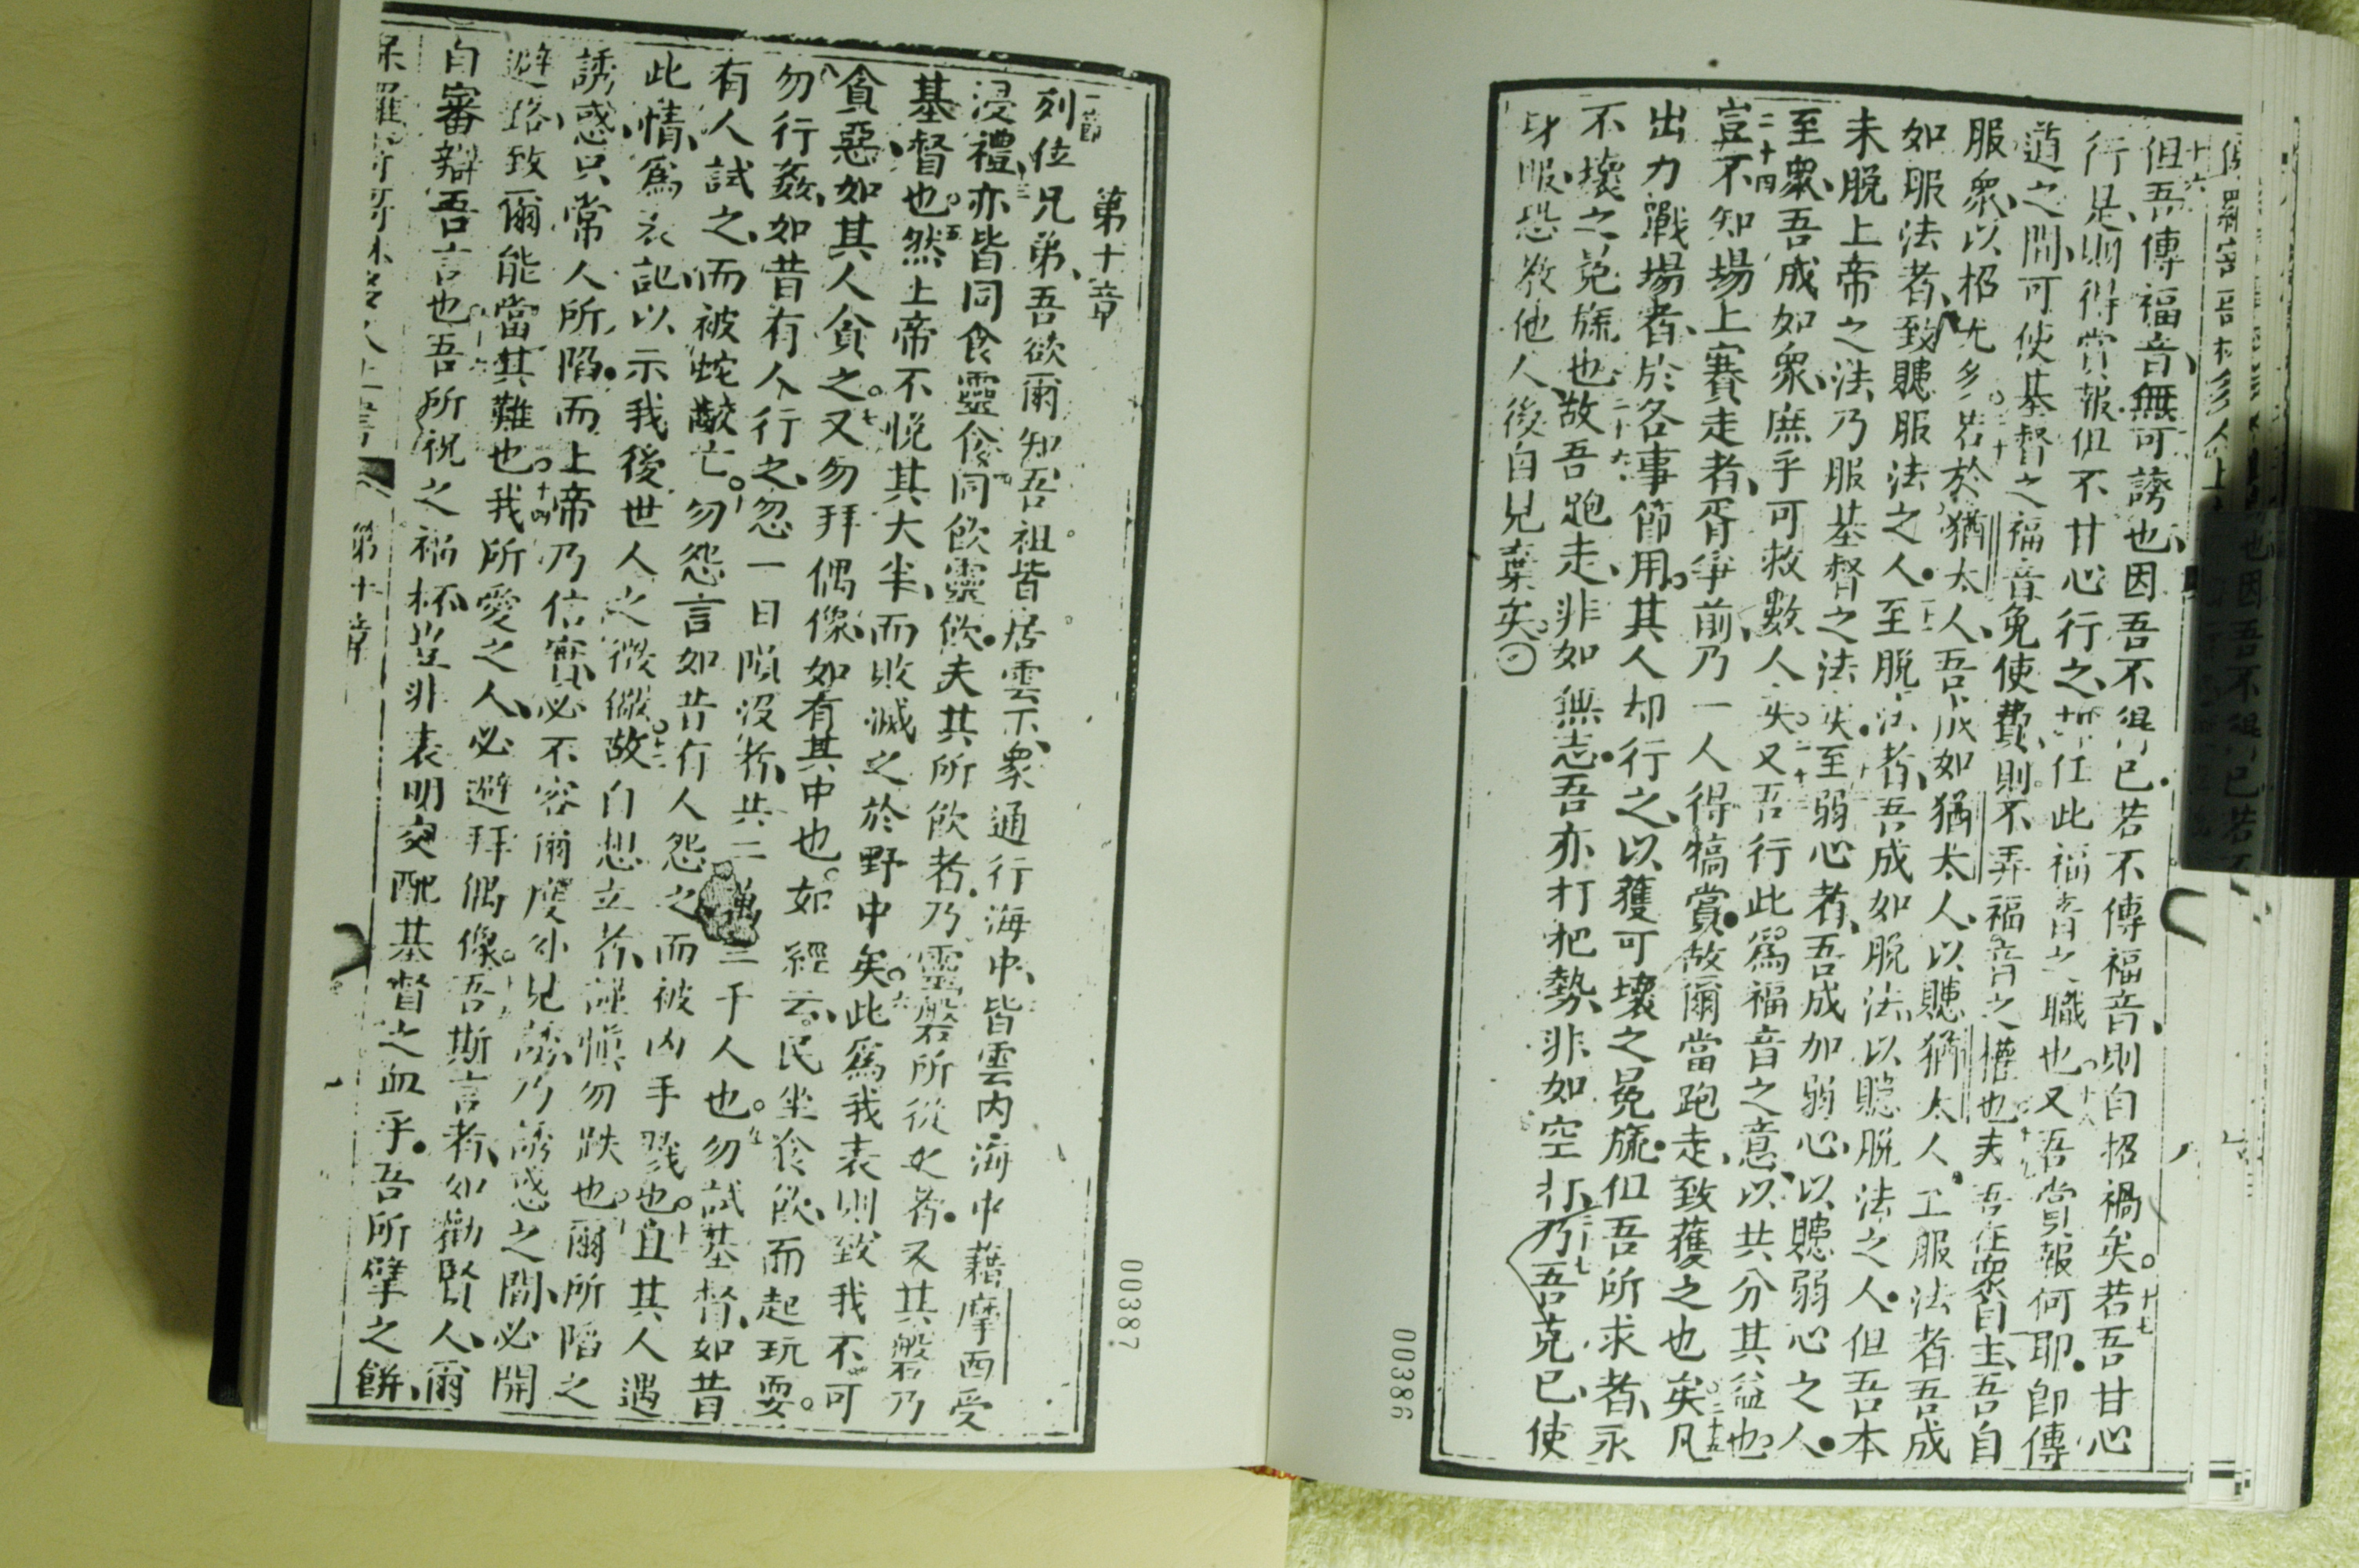 但吾傳福音、無可誇也、因吾不得已．若不傳福音、則自招禍矣。若吾甘心
十六
十七
行是、則得賞報．但不甘心行之、 任此福音之職也。又吾賞報何耶．卽傳
十八
道之間、可使基督之福音免使費、則不弄福音之權也。夫吾在眾自主、吾自
十九
服眾、以招尤多。若於猶太人、吾成如猶太人、以贃猶太人．至服法者吾成
二十
如服法者、致贃服法之人．至脫法者、吾成如脫法、以贃脫法之人．但吾本
未脫上帝之法、乃服基督之法矣。至弱心者、吾成如弱心、以贃弱心之人．
至眾、吾成如眾、庶乎可救數人矣。又吾行此、爲福音之意、以共分其益也。
二十四
豈不知場上賽走者、胥爭前、乃一人得犒賞．故爾當跑走、致獲之也矣。凡
二十五
出力戰場者、於各事節用。其人却行之、以獲可壞之冕旒．但吾所求者、永
不壞之冕旒也。故吾跑走、非如無志．吾亦打把勢、非如空打．乃吾克己、使
二十六
二十七
身服、恐教他人、後自見棄矣。
00386
第十章
一節
列位兄弟、吾欲爾知吾祖皆居雲下、衆通行海中、皆雲内海中藉摩西受
浸禮、亦皆同食靈食、同飮靈飮．夫其所飮者、乃靈磐所從之者．又其磐乃
基督也。然上帝不悅其大半、而敗滅之於野中矣。此爲我表、則致我不可
五
六
貪惡、如其人貪之。又勿拜偶像、如有其中也。如經云、民坐食飮、而起玩耍。
七
勿行姦、如昔有人行之、忽一日隕沒者、共二萬三千人也。勿試基督、如昔
九
有人試之、而被蛇齩亡。勿怨言、如昔有人怨之、而被凶手戮也。且其人遇
此情、爲表記、以示我後世人之微儆。故自想立者、謹愼勿跌也。爾所陷之
十二
誘惑、只常人所陷．而上帝乃信實、必不容爾度外見誘、乃誘惑之間、必開
避路、致爾能當其難也。我所愛之人、必避拜偶像。吾斯言者、如勸賢人、爾
十四
自審辯吾言也。吾所祝之福杯、豈非表明交配基督之血乎．吾所擘之餅、
第十章
00387